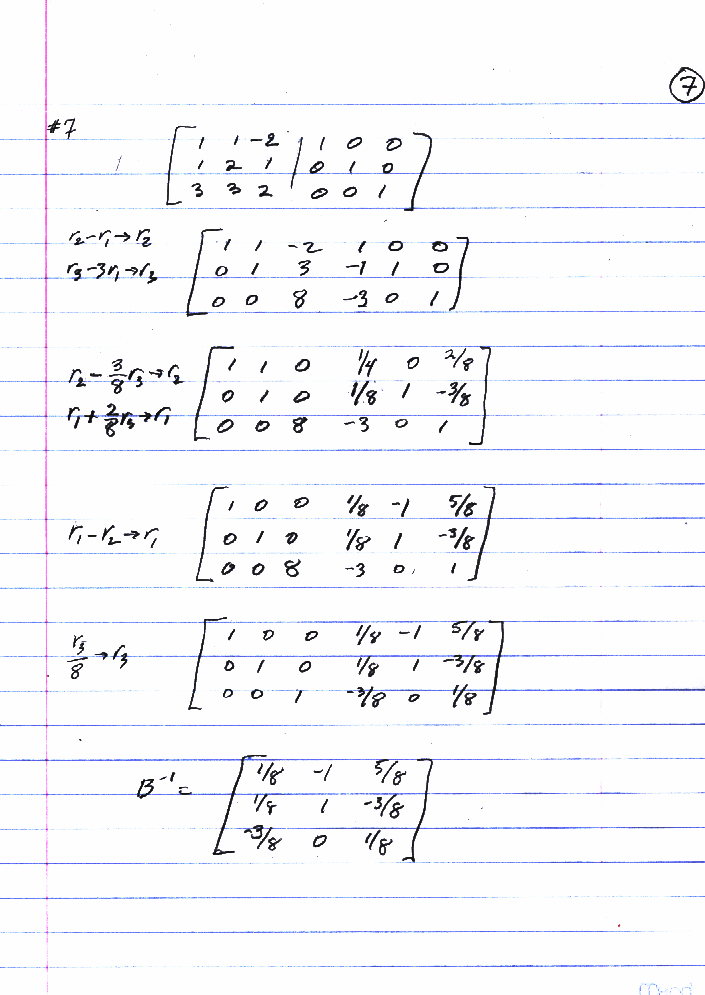 7
#7
1 1 -2 | 1 0 0
1 2 1 | 0 1 0
3 3 2 | 0 0 1
r₂-r₁→r₂
r₃-3r₁→r₃
1 1 -2 1 0 0
0 1 3 -1 1 0
0 0 8 -3 0 1
r₂-3/8r₃→r₂
r₁+2/8r₃→r₁
1 1 0 1/4 0 2/8
0 1 0 1/8 1 -3/8
0 0 8 -3 0 1
r₁-r₂→r₁
1 0 0 1/8 -1 5/8
0 1 0 1/8 1 -3/8
0 0 8 -3 0 1
r₃/8→r₃
1 0 0 1/8 -1 5/8
0 1 0 1/8 1 -3/8
0 0 1 -3/8 0 1/8
B⁻¹=
1/8 -1 5/8
1/8 1 -3/8
-3/8 0 1/8